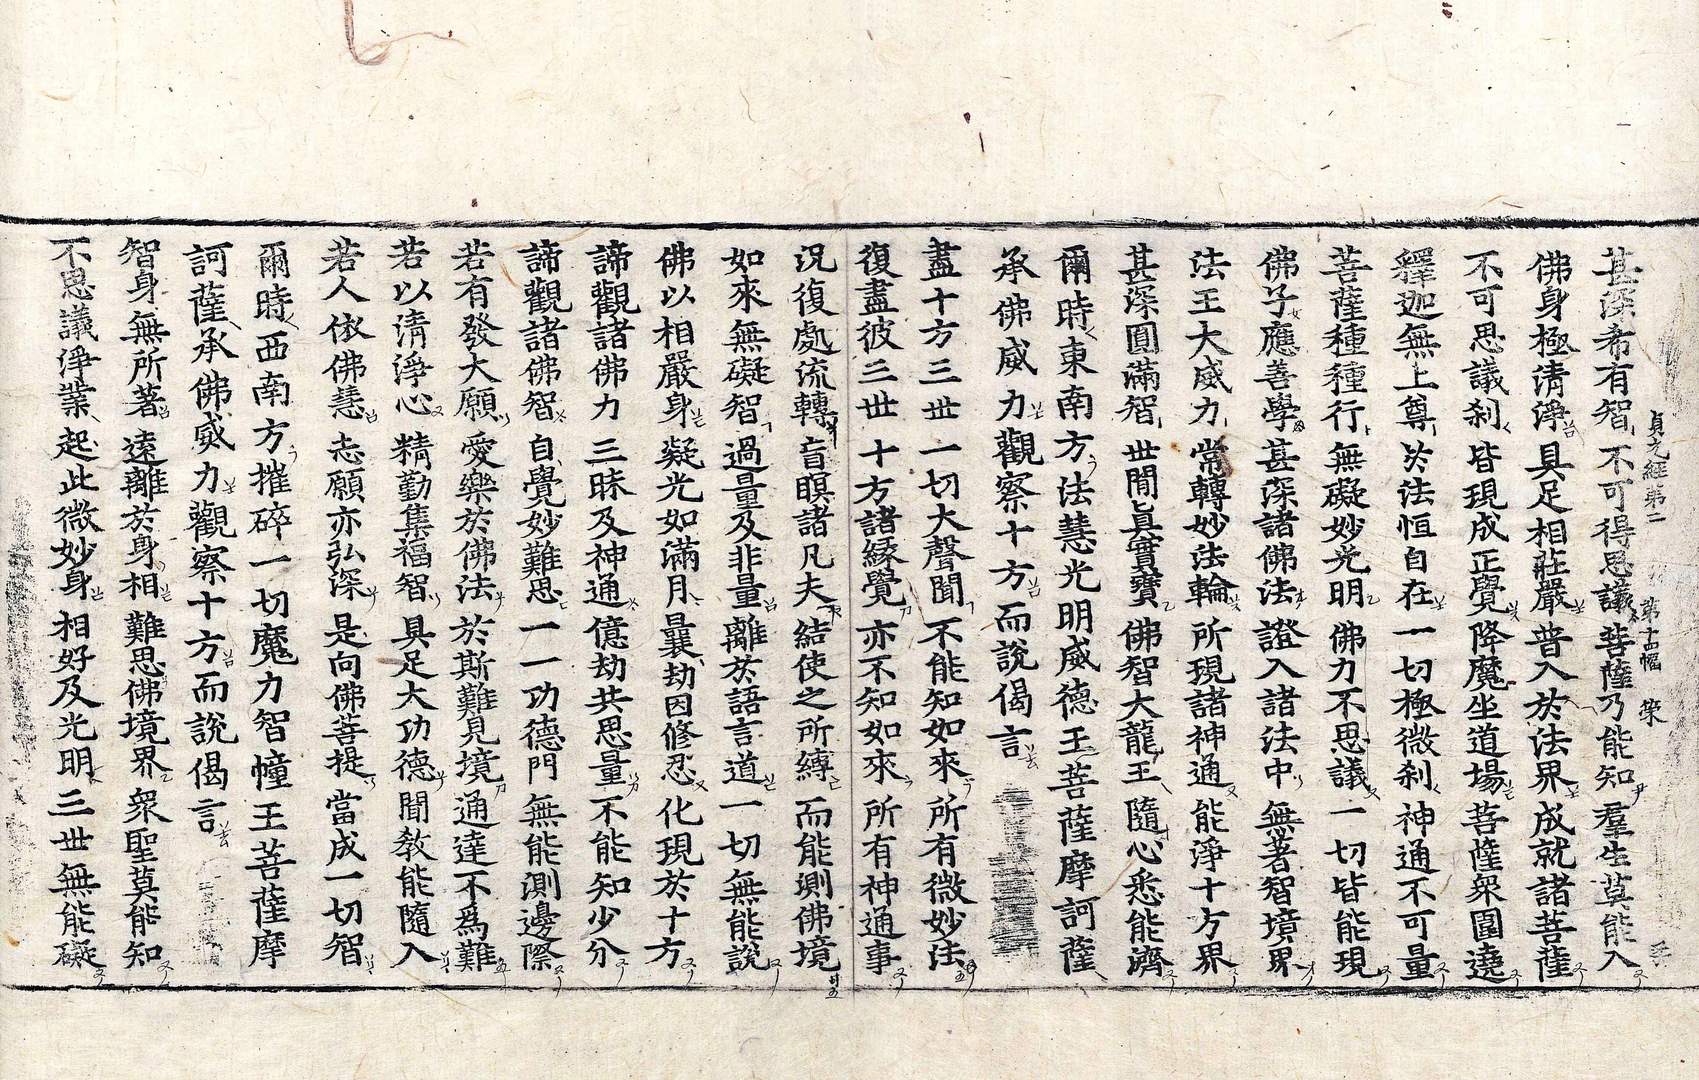 甚深希有智 不可得思議 菩薩乃能知 羣生莫能入
貞元經第二 第十四幅 榮
佛身極清淨 具足相莊嚴 普入於法界 成就諸菩薩
不可思議刹 皆現成正覺 降魔坐道場 菩薩衆圍遶
釋迦無上尊 於法恒自在 一切極微刹 神通不可量
菩薩種種行 無礙妙光明 佛力不思議 一切皆能現
佛子應善學 甚深諸佛法 證入諸法中 無著智境界
法王大威力 常轉妙法輪 所現諸神通 能淨十方界
甚深圓滿智 世閒眞實寶 佛智大龍王 隨心悉能濟
爾時東南方法慧光明威德王菩薩摩訶薩
承佛威力觀察十方而說偈言
盡十方三世 一切大聲聞 不能知如來 所有微妙法
復盡彼三世 十方諸縁覺 亦不知如來 所有神通事
況復處流轉 盲瞑諸凡夫 結使之所縛 而能測佛境
如來無礙智 過量及非量 離於語言道 一切無能說
佛以相嚴身 凝光如滿月 曩劫因修忍 化現於十方
諦觀諸佛力 三昧及神通 億劫共思量 不能知少分
諦觀諸佛智 自覺妙難思 一一功德門 無能測邊際
若有發大願 愛樂於佛法 於斯難見境 通達不爲難
若以清淨心 精勤集福智 具足大功德 聞教能隨入
若人依佛慧 志願亦弘深 是向佛菩提 當成一切智
爾時西南方摧碎一切魔力智幢王菩薩摩
訶薩承佛威力觀察十方而說偈言
智身無所著 遠離於身相 難思佛境界 衆聖莫能知
不思議淨業 起此微妙身 相好及光明 三世無能礙